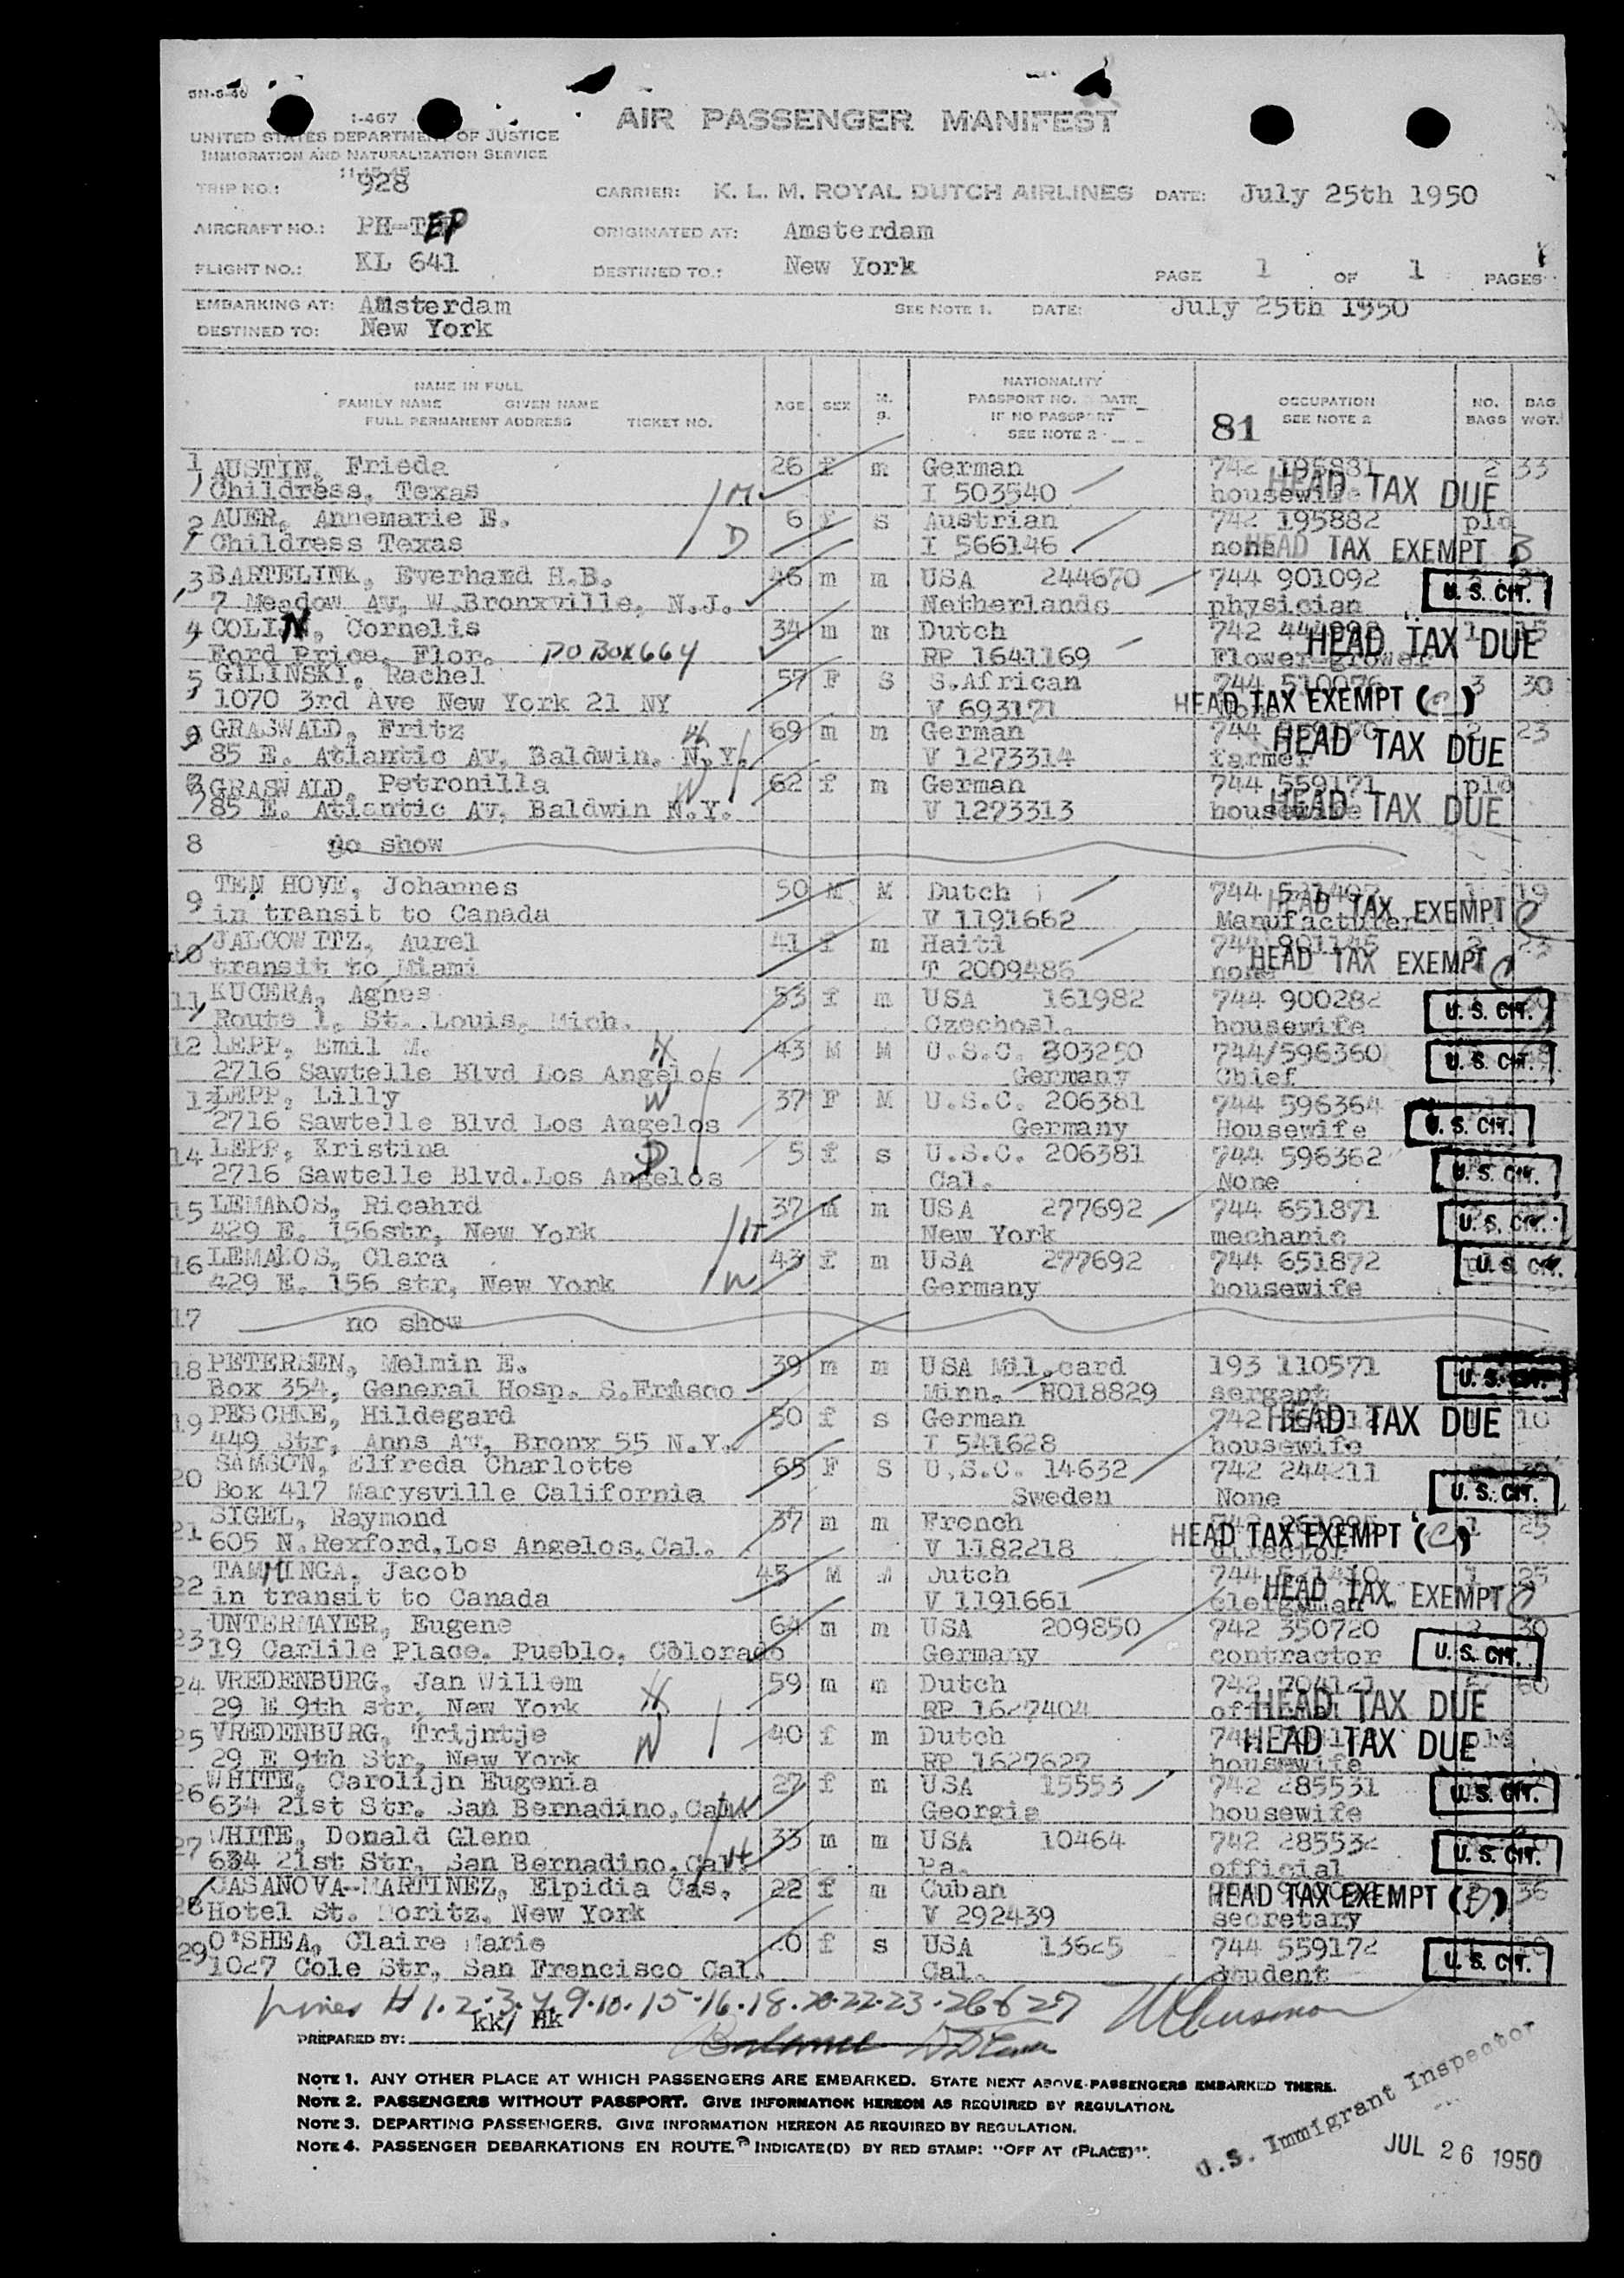 I-467
UNITED STATES DEPARTMENT OF JUSTICE
IMMIGRATION AND NATURALIZATION SERVICE
AIR PASSENGER MANIFEST
TRIP NO.: 928 CARRIER: K. L. M. ROYAL DUTCH AIRLINES DATE: July 25th 1950
AIRCRAFT NO.: PH-TEP ORIGINATED AT: Amsterdam
FLIGHT NO.: KL 641 DESTINED TO.: New York PAGE 1 OF 1 PAGES
EMBARKING AT: Amsterdam SEE NOTE 1. DATE: July 25th 1950
DESTINED TO: New York
NAME IN FULL NATIONALITY
FAMILY NAME GIVEN NAME AGE SEX M. S. PASSPORT NO. DATE OCCUPATION NO. BAGS BAG WGT.
FULL PERMANENT ADDRESS TICKET NO. IF NO PASSPORT SEE NOTE 2 81 SEE NOTE 2
1 AUSTIN, Frieda 26 f m German 742 195881 2 33
Childress, Texas M I 503540 housewife HEAD TAX DUE
2 AUER, Annemarie E. 6 f s Austrian 742 195882 plo
Childress Texas D I 566146 none HEAD TAX EXEMPT
3 BARTELINK, Everhard H.B. 46 m m USA 244670 744 901092
7 Meadow AV, W.Bronxville, N.J. Netherlands physician U. S. CIT.
4 COLIN, Cornelis 34 m m Dutch 742 1 15
Ford Price, Flor. PO BOX 664 RP 1641169 Flower grower HEAD TAX DUE
5 GILINSKI, Rachel 57 F S S.African 744 510076 3 30
1070 3rd Ave New York 21 NY V 693171 HEAD TAX EXEMPT (C)
GRASWALD, Fritz H 69 m m German 744 2 23
85 E. Atlantic AV, Baldwin. N.Y. V 1273314 farmer HEAD TAX DUE
GRASWALD, Petronilla W 62 f m German 744 559171 plo
85 E. Atlantic AV, Baldwin N.Y. V 1273313 housewife HEAD TAX DUE
8 no show
9 TEN HOVE, Johannes 50 M M Dutch 744 1 19
in transit to Canada V 1191662 Manufacturer HEAD TAX EXEMPT
10 JALCOWITZ, Aurel 41 f m Haiti 744 901145 2 23
transit to Miami T 2009486 none HEAD TAX EXEMPT
11 KUCERA, Agnes 53 f m USA 161982 744 900282
Route 1, St. Louis, Mich. Czechosl. housewife U. S. CIT.
12 LEPP, Emil M. H 43 M M U.S.C. 203250 744/596360
2716 Sawtelle Blvd Los Angelos Germany Chief U. S. CIT.
13 LEPP, Lilly W 37 F M U.S.C. 206381 744 596364
2716 Sawtelle Blvd Los Angelos Germany Housewife U. S. CIT.
14 LEPP, Kristina D 5 f s U.S.C. 206381 744 596362
2716 Sawtelle Blvd.Los Angelos Cal. None U. S. CIT.
15 LEMAKOS, Ricahrd 37 m m USA 277692 744 651871
429 E. 156str, New York H New York mechanic U. S. CIT.
16 LEMAKOS, Clara 43 f m USA 277692 744 651872
429 E. 156 str, New York W Germany housewife U. S. CIT.
17 no show
18 PETERSEN, Melmin E. 39 m m USA Mil.card 193 110571
Box 354, General Hosp. S.Frisco Minn. RO18829 sergant U. S. CIT.
19 PESCHKE, Hildegard 50 f s German 742 10
449 Str, Anns AV, Bronx 55 N.Y. I 541628 housewife HEAD TAX DUE
20 SAMSON, Elfreda Charlotte 65 F S U.S.C. 14632 742 244211
Box 417 Marysville California Sweden None U. S. CIT.
21 SIGEL, Raymond 37 m m French 1 25
605 N.Rexford,Los Angelos,Cal. V 1182218 director HEAD TAX EXEMPT (C)
22 TAMMINGA, Jacob 45 M M Dutch 744 1 25
in transit to Canada V 1191661 HEAD TAX EXEMPT
23 UNTERMAYER, Eugene 64 m m USA 209850 742 350720 2 30
19 Carlile Place, Pueblo, Colorado Germany contractor U. S. CIT.
24 VREDENBURG, Jan Willem H 59 m m Dutch 742 704121 60
29 E 9th str, New York RP 1627404 official HEAD TAX DUE
25 VREDENBURG, Trijntje W 40 f m Dutch
29 E 9th Str, New York RP 1627627 housewife HEAD TAX DUE
26 WHITE, Carolijn Eugenia 27 f m USA 15553 742 285531
634 21st Str. San Bernadino,Cal. W Georgia housewife U. S. CIT.
27 WHITE, Donald Glenn 33 m m USA 10464 742 285532
634 21st Str, San Bernadino,Cal. H Pa. official U. S. CIT.
28 CASANOVA-MARTINEZ, Elpidia Cas. 22 f m Cuban HEAD TAX EXEMPT 36
Hotel St. Moritz, New York V 292439 secretary
29 O'SHEA, Claire Marie 20 f s USA 13625 744 559172
1027 Cole Str, San Francisco Cal. Cal. student U. S. CIT.
1.2.3.4.9.10.15.16.18.20.22.23.26 & 27
PREPARED BY: kk/ Hk
NOTE 1. ANY OTHER PLACE AT WHICH PASSENGERS ARE EMBARKED. STATE NEXT ABOVE PASSENGERS EMBARKED THERE.
NOTE 2. PASSENGERS WITHOUT PASSPORT. GIVE INFORMATION HEREON AS REQUIRED BY REGULATION.
NOTE 3. DEPARTING PASSENGERS. GIVE INFORMATION HEREON AS REQUIRED BY REGULATION.
NOTE 4. PASSENGER DEBARKATIONS EN ROUTE. INDICATE(D) BY RED STAMP: "OFF AT (PLACE)".
U.S. Immigrant Inspector
JUL 26 1950